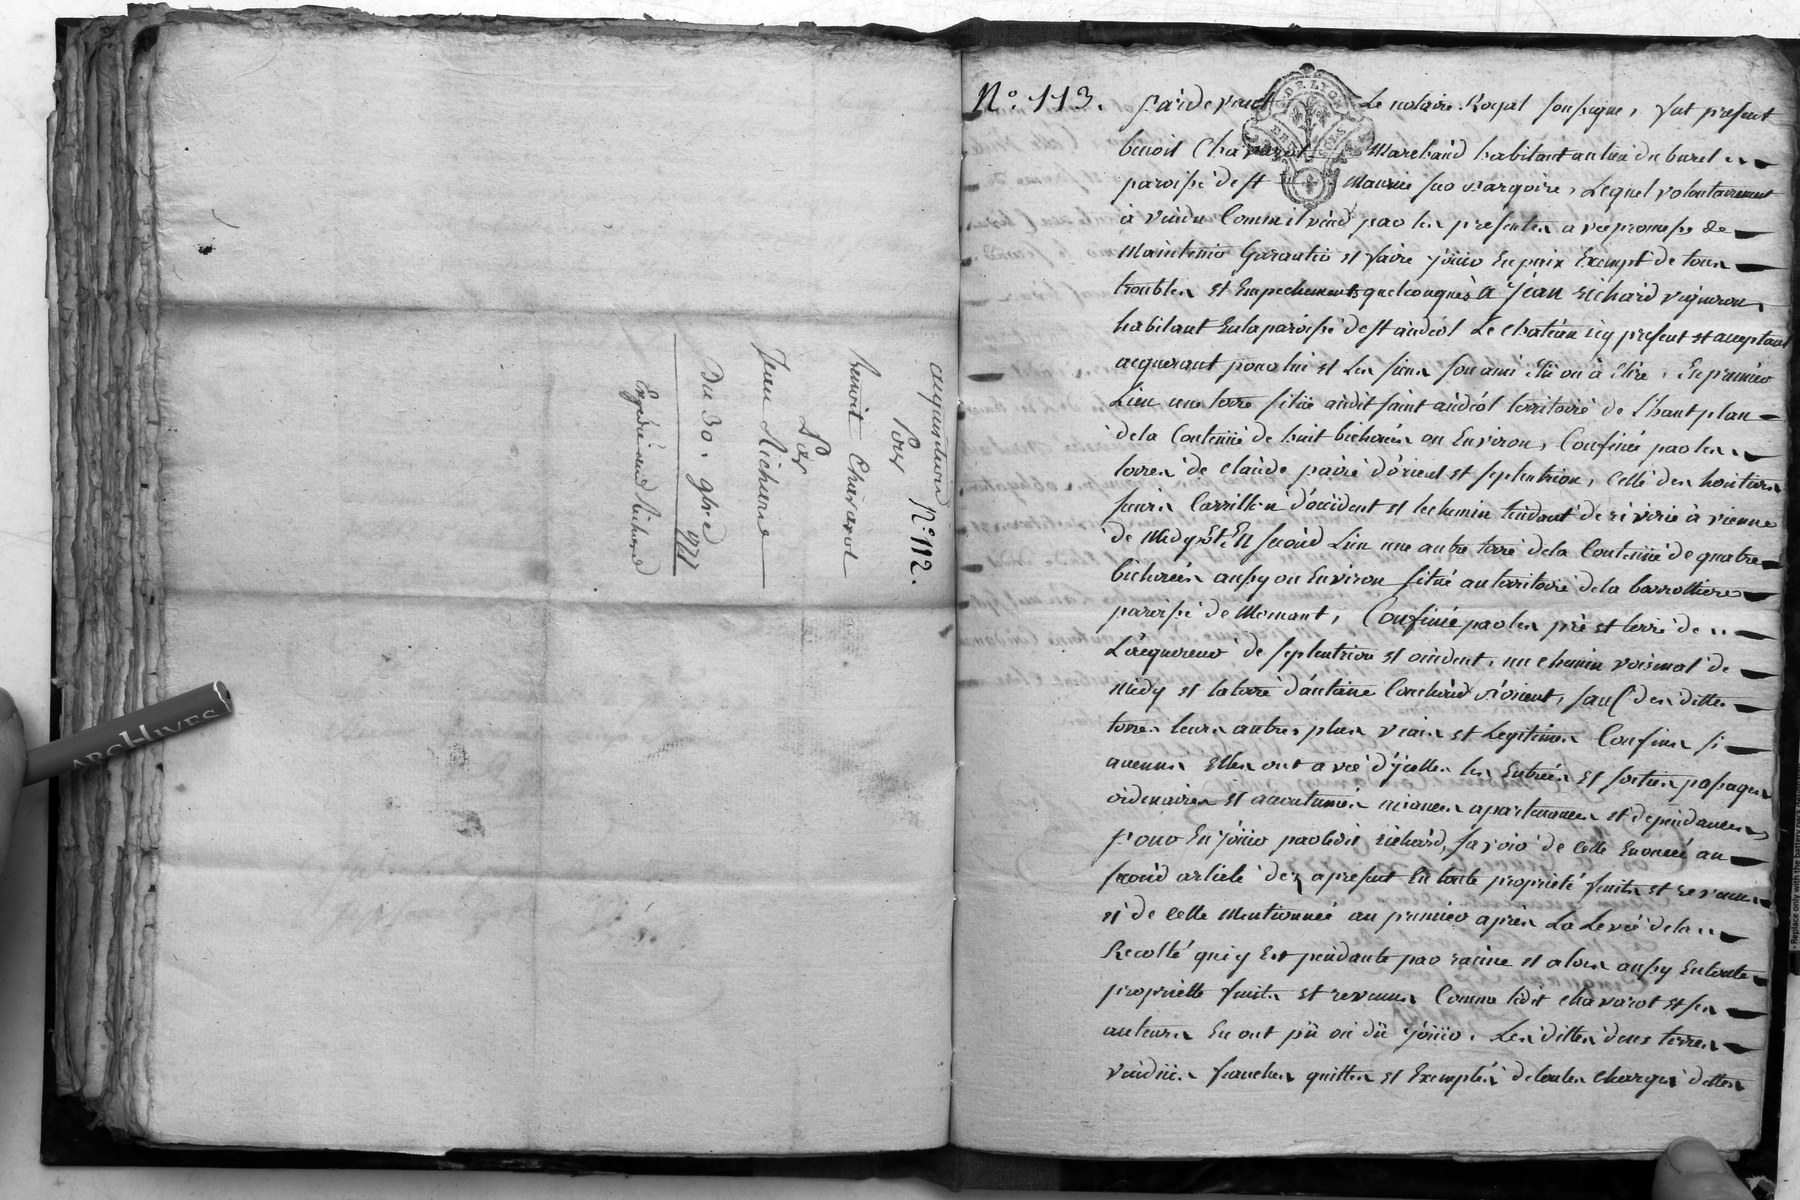 acquireur N° 112.
Pour
benoit Chavarot
Par
Jean Richerre
Du 30. 9bre 1771
Expedié aud Richere
ARCHIVES
N° 113.
Pardevant Le notaire Royal soussigne, fut present
benoit Chavarot Marchand habitant au lieu du burel
paroisse de st Maurice sur d'argoire, Lequel volontairement
à vendu Comme il vend par les presentes avec promesse de
Maintenir Garantir et faire jouir En paix Exempt de tous
troubles et Empechements quelconques a Jean Richard vigneron
habitant En la paroisse de st andéol Le château icy present et acceptant
acquerant pour lui et Les siens son ami élu ou à élire, En premier
Lieu une terre située audit saint andéol territoire de L'haut plan
de la Contenüe de huit bicherées ou Environ, Confinée par les
terres de claude pairé d'orient et septentrion, Celle des hoirs
Carrillon d'occident et le chemin tendant de riverie à vienne
de Midy. Et En second Lieu une autre terre de la Contenüe de quatre
bicherées aussy ou Environ située au territoire de la barrottiere
paroisse de Mornant, Confinée par les pré et terre de
L'acquereur de septentrion et occident, un chemin voisinal de
midy et la terre d'antoine Couchoud d'orient, sauf des dittes
terres leurs autres plus vrais et Legitimes Confins si
aucuns Elles ont avec d'jcelles les Entrées et sorties passages
ordinaires et accoutumés aisances apartenances et dependances
Pour En jouir par ledit Richard, savoir de celle Enoncée au
second article dez apresent En toute proprieté fruits et revenus
et de celle Mentionnée au premier après La Levée de la
Recolte qui y Est pendante par racine et alors aussy En toute
proprieté fruits et revenus Comme ledit chavarot et ses
auteurs En ont pü ou dü jouir. Les dittes deux terres
vendües franches quittes et Exemptes de toutes charges dettes